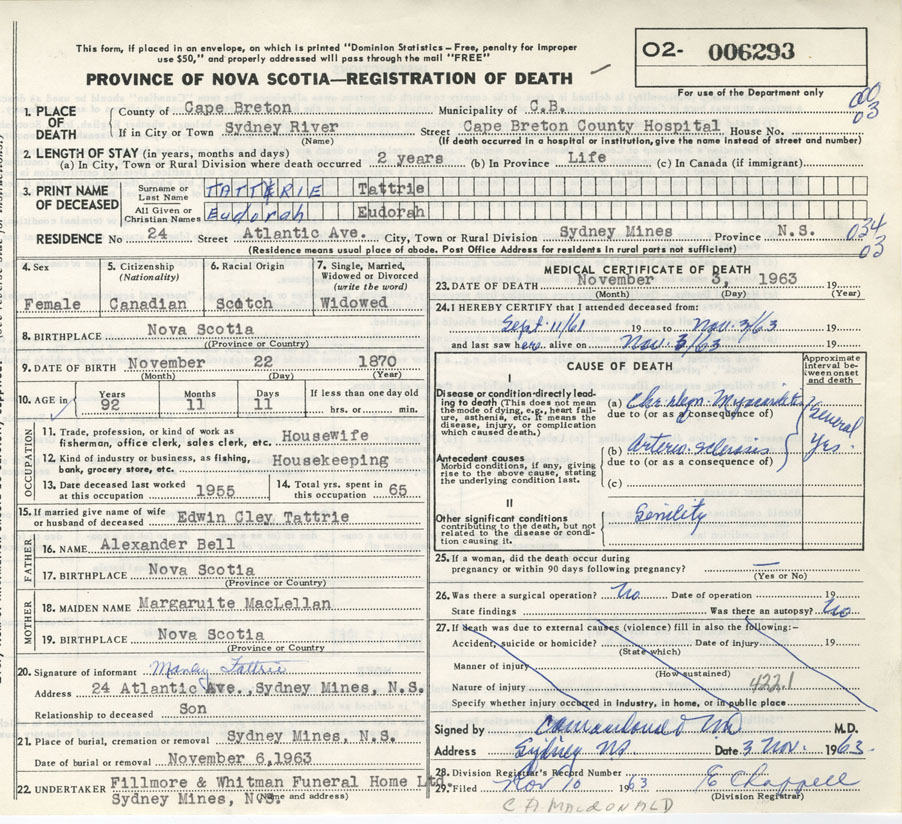 This form, if placed in an envelope, on which is printed "Dominion Statistics – Free, penalty for improper
use $50," and properly addressed will pass through the mail "FREE"
O2- 006293
For use of the Department only
PROVINCE OF NOVA SCOTIA—REGISTRATION OF DEATH
03
1. PLACE OF DEATH
County of Cape Breton Municipality of C.B.
If in City or Town Sydney River Street Cape Breton County Hospital House No.
(Name) (If death occurred in a hospital or institution, give the name instead of street and number)
2. LENGTH OF STAY (in years, months and days)
(a) In City, Town or Rural Division where death occurred 2 years (b) In Province Life (c) In Canada (if immigrant)
3. PRINT NAME OF DECEASED
Surname or Last Name TATTRIE Tattrie
All Given or Christian Names Eudorah Eudorah
RESIDENCE No 24 Street Atlantic Ave. City, Town or Rural Division Sydney Mines Province N.S.
034
03
(Residence means usual place of abode. Post Office Address for residents in rural parts not sufficient)
4. Sex
Female
5. Citizenship
(Nationality)
Canadian
6. Racial Origin
Scotch
7. Single, Married, Widowed or Divorced
(write the word)
Widowed
8. BIRTHPLACE Nova Scotia
(Province or Country)
9. DATE OF BIRTH November 22 1870
(Month) (Day) (Year)
10. AGE in
Years Months Days If less than one day old
92 11 11 hrs. or min.
OCCUPATION
11. Trade, profession, or kind of work as
fisherman, office clerk, sales clerk, etc. Housewife
12. Kind of industry or business, as fishing,
bank, grocery store, etc. Housekeeping
13. Date deceased last worked
at this occupation 1955
14. Total yrs. spent in
this occupation 65
15. If married give name of wife
or husband of deceased Edwin Cley Tattrie
FATHER
16. NAME Alexander Bell
17. BIRTHPLACE Nova Scotia
(Province or Country)
MOTHER
18. MAIDEN NAME Margaruite MacLellan
19. BIRTHPLACE Nova Scotia
(Province or Country
20. Signature of informant Manley Tattrie
Address 24 Atlantic Ave., Sydney Mines, N.S.
Relationship to deceased Son
21. Place of burial, cremation or removal Sydney Mines, N.S.
Date of burial or removal November 6,1963
22. UNDERTAKER Fillmore & Whitman Funeral Home Ltd.
Sydney Mines, N.S.
(Name and address)
MEDICAL CERTIFICATE OF DEATH
23. DATE OF DEATH November 3, 1963 19
(Month) (Day) (Year)
24. I HEREBY CERTIFY that I attended deceased from:
Sept 11/61 19 to Nov. 3/63 19
and last saw her alive on Nov. 3/63 19
CAUSE OF DEATH
Approximate interval between onset and death
I
Disease or condition directly leading to death (This does not mean the mode of dying, e.g., heart failure, asthenia, etc. It means the disease, injury, or complication which caused death.)
(a) Myocarditis
due to (or as a consequence of)
Several yrs.
Antecedent causes
Morbid conditions, if any, giving rise to the above cause, stating the underlying condition last.
(b) Arterio-sclerosis
due to (or as a consequence of)
(c)
II
Other significant conditions
contributing to the death, but not related to the disease or condition causing it.
Senility
25. If a woman, did the death occur during
pregnancy or within 90 days following pregnancy? –
(Yes or No)
26. Was there a surgical operation? No Date of operation 19
State findings Was there an autopsy? No
27. If death was due to external causes (violence) fill in also the following:–
Accident, suicide or homicide? Date of injury 19
(State which)
Manner of injury
(How sustained)
Nature of injury 422.1
Specify whether injury occurred in industry, in home, or in public place
Signed by M.D.
Address Sydney NS Date 3 Nov. 1963.
28. Division Registrar's Record Number
29. Filed Nov 10 1963 E Chappell
(Division Registrar)
C A MACDONALD